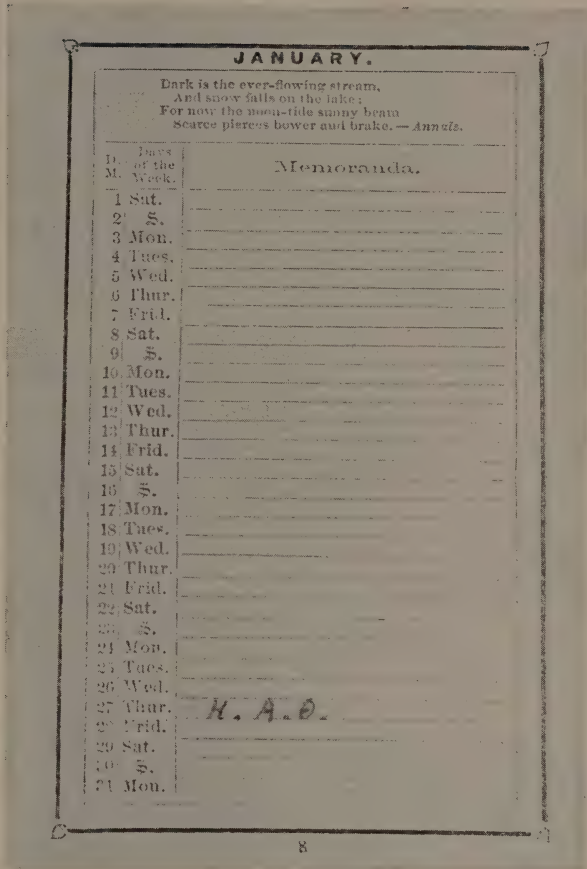 JANUARY.
Dark is the ever-flowing stream,
And snow falls on the lake;
For now the noon-tide sunny beam
Scarce pierces bower and brake.—Annals.
D. M. Days of the Week. Memoranda.
1 Sat.
2 S.
3 Mon.
4 Tues.
5 Wed.
6 Thur.
7 Frid.
8 Sat.
9 S.
10 Mon.
11 Tues.
12 Wed.
13 Thur.
14 Frid.
15 Sat.
16 S.
17 Mon.
18 Tues.
19 Wed.
20 Thur.
21 Frid.
22 Sat.
23 S.
24 Mon.
25 Tues.
26 Wed.
27 Thur. H. A. O.
28 Frid.
29 Sat.
30 S.
31 Mon.
8